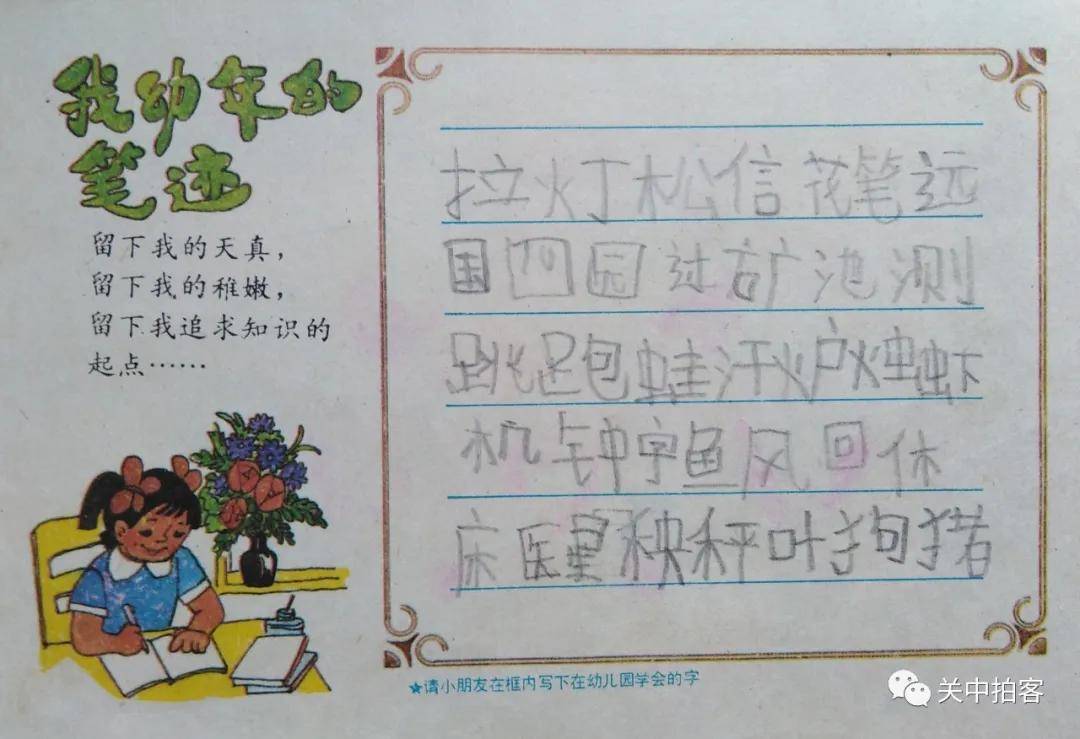 我幼年的
笔迹
留下我的天真，
留下我的稚嫩，
留下我追求知识的
起点……
拉灯松信花笔远
国四园过矿池测
跳跑蛙汗炉烛虾
机钟字鱼风回休
床医星秧秤叶狗猪
★请小朋友在框内写下在幼儿园学会的字
关中拍客